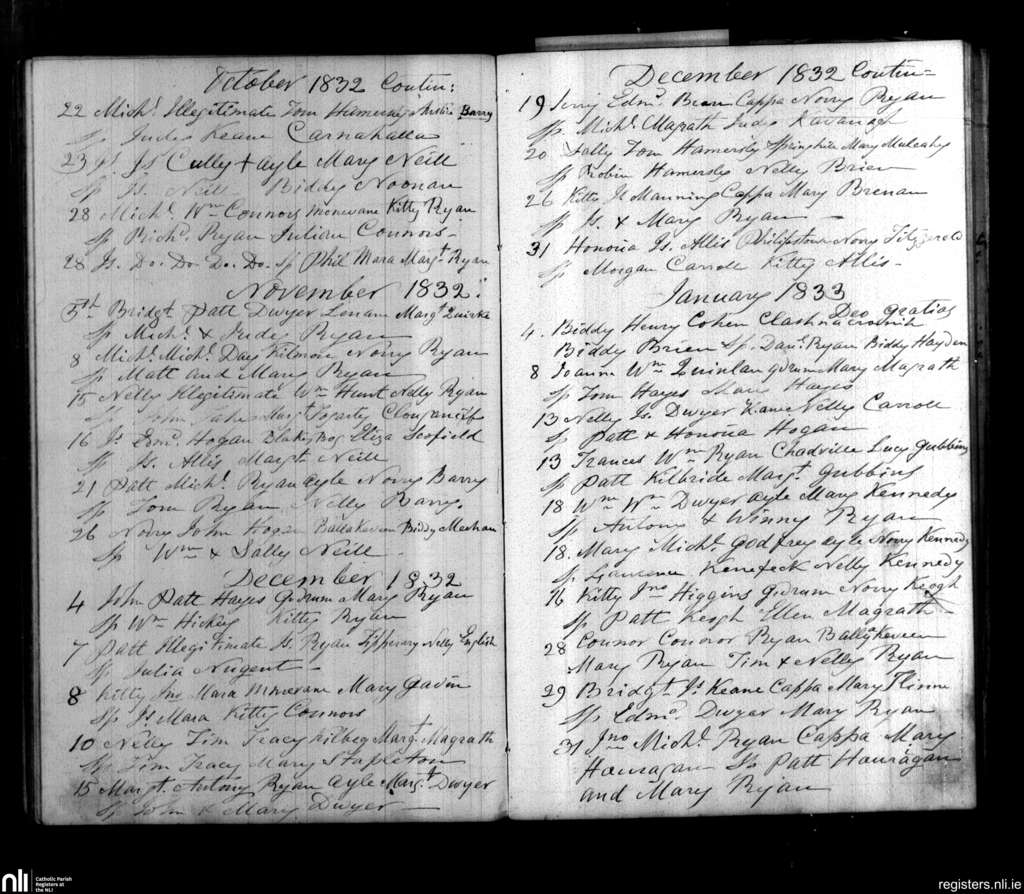 October 1832 Contin:
22 Mich.l Illegitimate Tom Hamersly Barry
Sp Judy Keane Carnahalla
23 Js Cully + ayle Mary Neill
Sp Js. Neill Biddy Noonan
28 Mich.l Wm Connors monevane Kitty Ryan
Sp Rich.d Ryan Julian Connors -
28 Js. Do. Do. Do. Do. Sp Phil Mara Marg.t Ryan
November 1832:
Bridg.t Patt Dwyer Marg.t Quirke
Sp Mich.l & Judy Ryan
8 Mich.l Mich.l Day Kilmore Norry Ryan
Sp Matt and Mary Ryan
15 Nelly Illegitimate Wm Hunt Nelly Ryan
Sp John Marg.t Fogarty
16 Js Edm.d Hogan Eliza Scofield
Sp Js. Allis Marg.t Neill
21 Patt Mich.l Ryan ayle Norry Barry
Sp Tom Ryan Nelly Barry.
26 Norry John Hogan Ballakeveen Biddy Meehan
Sp Wm & Sally Neill -
December 1832
4 John Patt Hayes Gdrum Mary Ryan
Sp Wm Hickey Kitty Ryan
7 Patt Illegitimate Js. Ryan Tipperary Nelly English
Sp Julia Nugent -
8 Kitty Jno Mara Monevane Mary Gavin
Sp Js Mara Kitty Connors
10 Nelly Tim Tracy Kilbeg Marg.t Magrath
Sp Tim Tracy Mary Stapleton
15 Marg.t Antony Ryan ayle Marg.t Dwyer
Sp John & Mary Dwyer
December 1832 Contin=
19 Jerry Edm.d Bean Cappa Norry Ryan
Sp Mich.l Magrath Judy Kavanagh
20 Sally Tom Hamersly Springhill Mary Mulcahy
Sp Robin Hamersly Nelly Brien
26 Kitty Js Manning Cappa Mary Brenan
Sp Js. & Mary Ryan
31 Honoria Js. Allis Philipstown Norry Fitzgerald
Sp Morgan Carroll Kitty Allis -
January 1833
Deo gratias
4. Biddy Henry Cohen
Biddy Brien Sp. Dan.l Ryan Biddy Hayden
8 Joanne Wm Quinlan gdrum Mary Magrath
Sp Tom Hayes Mary Hayes
13 Nelly Js Dwyer Keane Nelly Carroll
Sp Patt & Honoria Hogan
13 Frances Wm Ryan Chadville Lucy Gubbins
Sp Patt Kilbride Marg.t Gubbins
18 Wm Wm Dwyer ayle Mary Kennedy
Sp Antony & Winny Ryan
18. Mary Mich.l Godfrey ayle Norry Kennedy
Sp Lawrence Kenefeck Nelly Kennedy
16 Kitty Jno Higgins Gdrum Norry Keogh
Sp Patt Keogh Ellen Magrath
28 Connor Connor Ryan Ballakeveen
Mary Ryan Tim & Nelly Ryan
29 Bridg.t Js Keane Cappa Mary Flinn
Sp Edm.d Dwyer Mary Ryan
31 Jno Mich.l Ryan Cappa Mary
Houragan Sp Patt Houragan
and Mary Ryan
nli Catholic Parish
Registers at
the NLI
registers.nli.ie